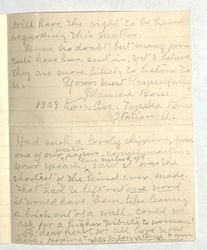 will have the right to be heard
regarding this matter.
Have no doubt but many pro-
tests have been sent in, yet I believe
they are more likely to listen to
Yours most Respectfully
Blanche Boies
1909 Kan. Ave. Topeka Kans
Station A.
Had such a lovely clipping from
one of our papers
your speech it was the
shortest of the kind ever made.
That had he left out one word
it would have been like leaving
a brick out of a wall. Could we
ask for a higher tribute to woman?
all love you